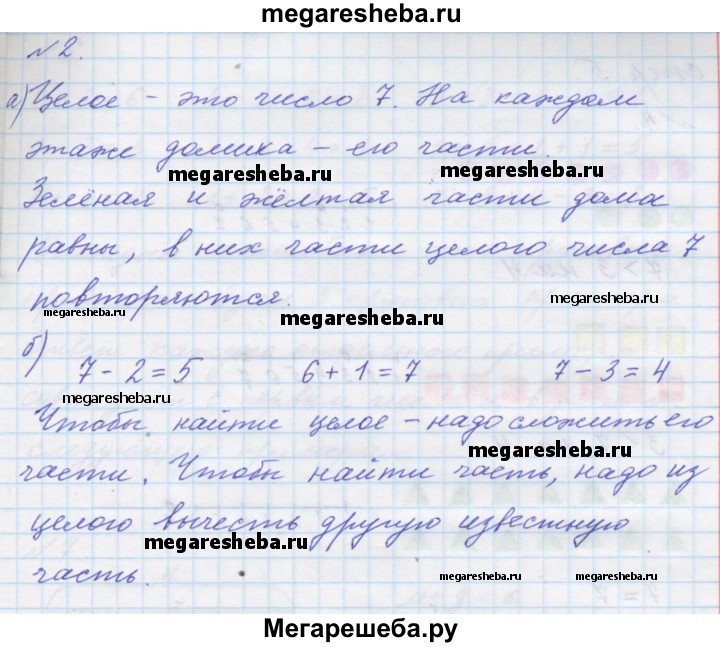 megaresheba.ru
№ 2.
а) Целое - это число 7. На каждом
этаже домика - его части.
megaresheba.ru
Зелёная и жёлтая части дома
равны, в них части целого числа 7
повторяются.
megaresheba.ru
megaresheba.ru
megaresheba.ru
б)
7 - 2 = 5 6 + 1 = 7 7 - 3 = 4
megaresheba.ru
Чтобы найти целое - надо сложить его
megaresheba.ru
части. Чтобы найти часть, надо из
целого вычесть другую известную
megaresheba.ru
часть.
megaresheba.ru
megaresheba.ru
Мегарешеба.ру